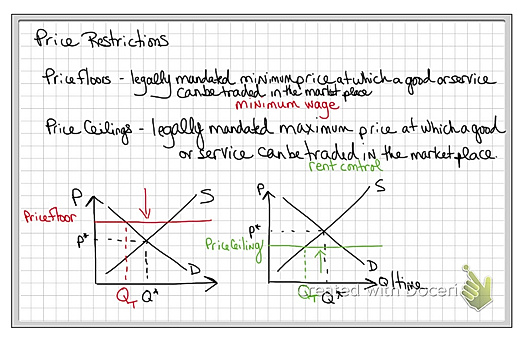 Price Restrictions
Price floors - legally mandated minimum price at which a good or service
can be traded in the market place
minimum wage
Price Ceilings - legally mandated maximum price at which a good
or service can be traded in the marketplace.
rent control
P
S
Price floor
P*
D
QT
Q*
P
S
P*
Price Ceiling
D
Q/time
QT
Q*
Created with Doceri